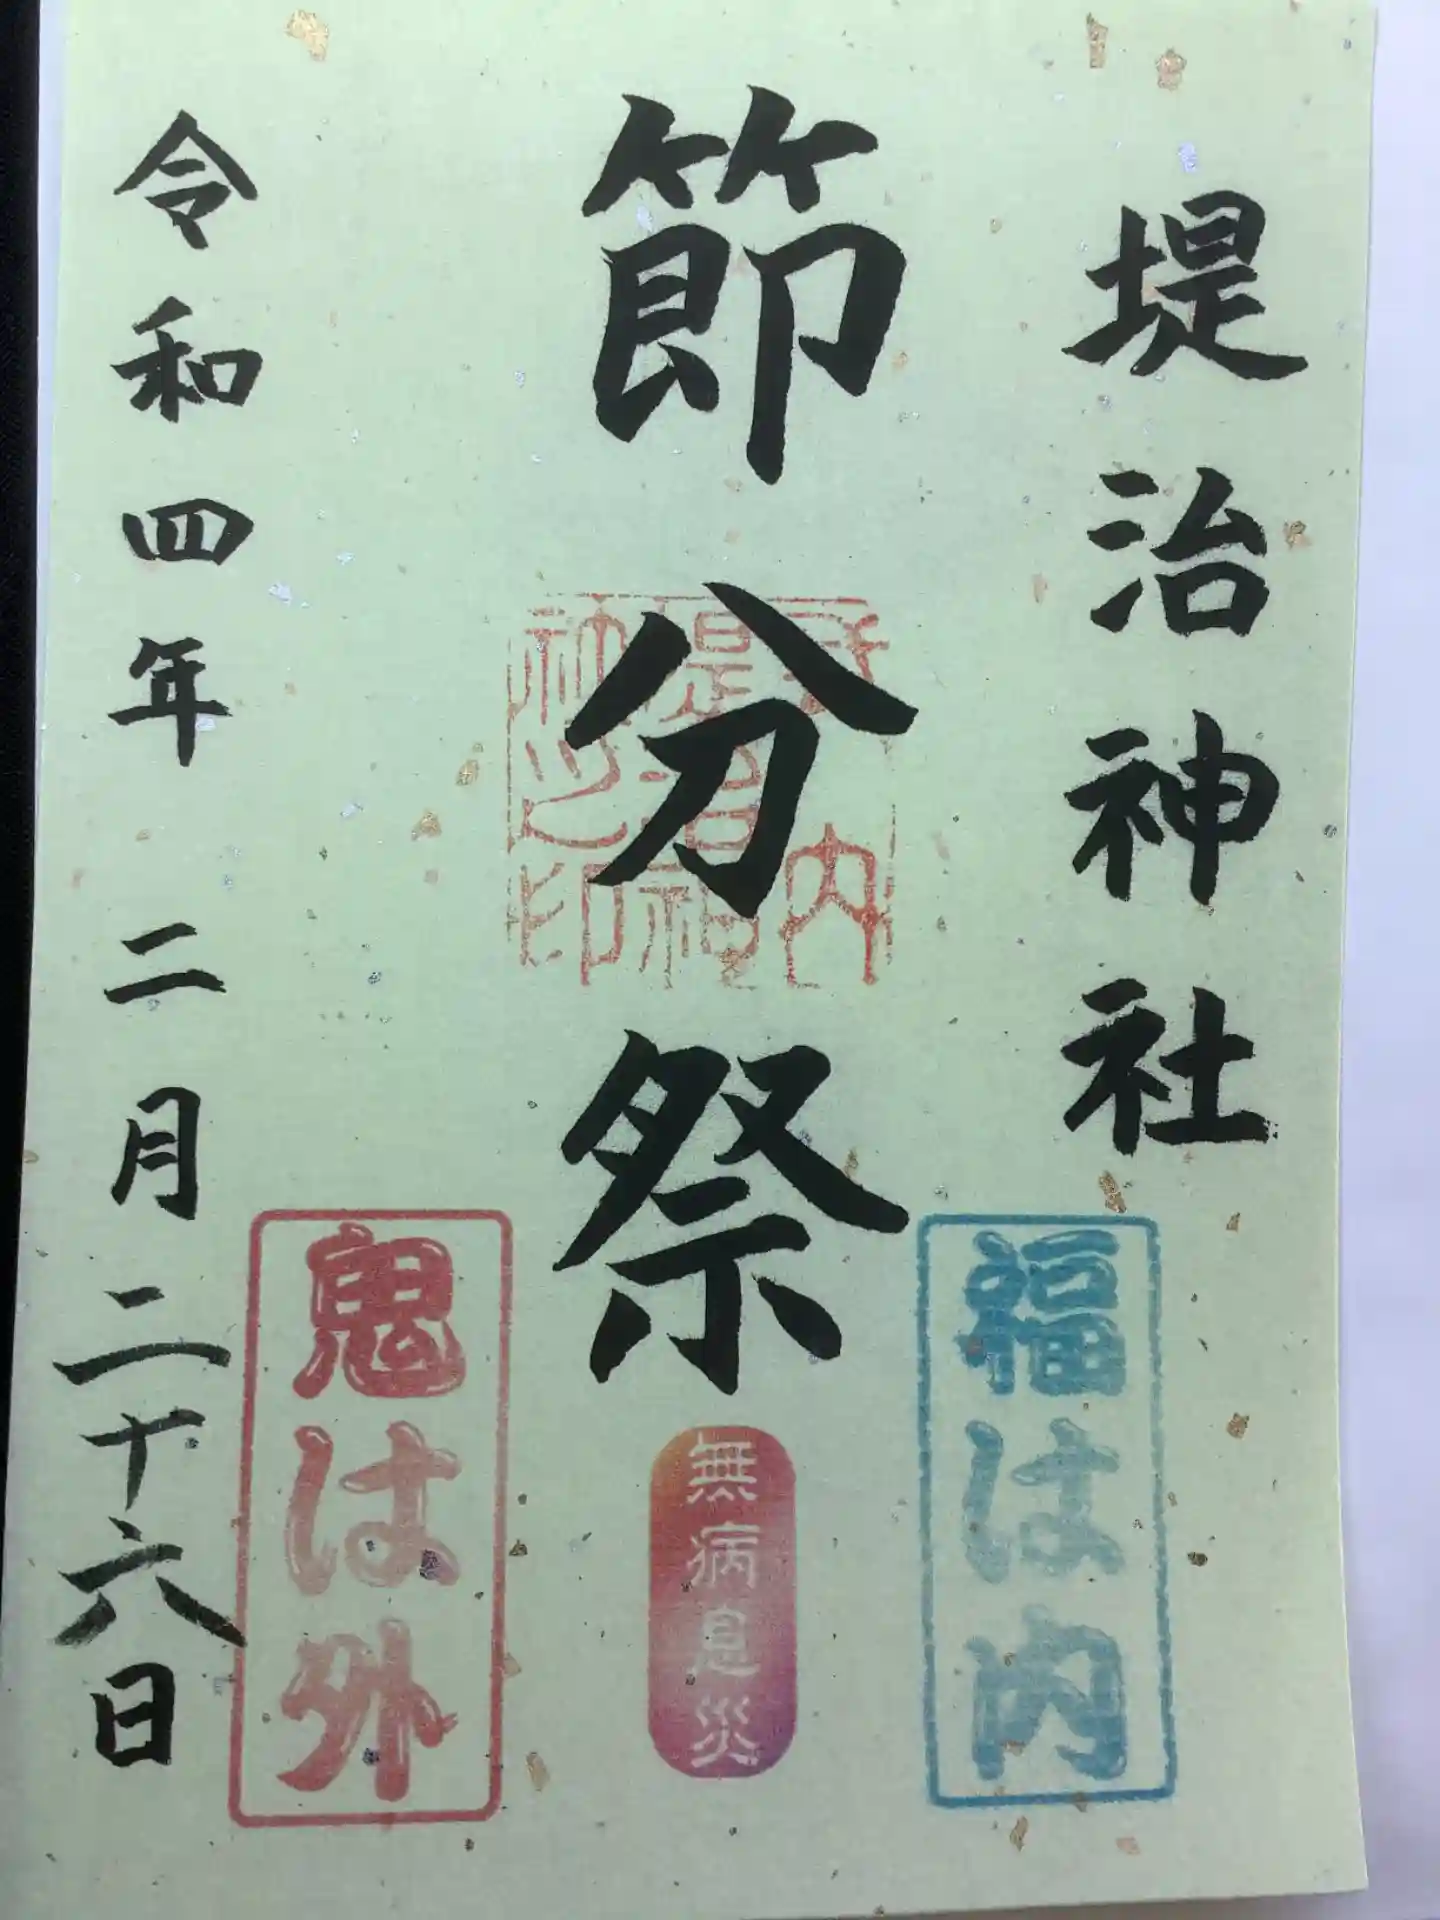 堤治神社
節分祭
令和四年 二月二十六日
福は内
無病息災
鬼は外